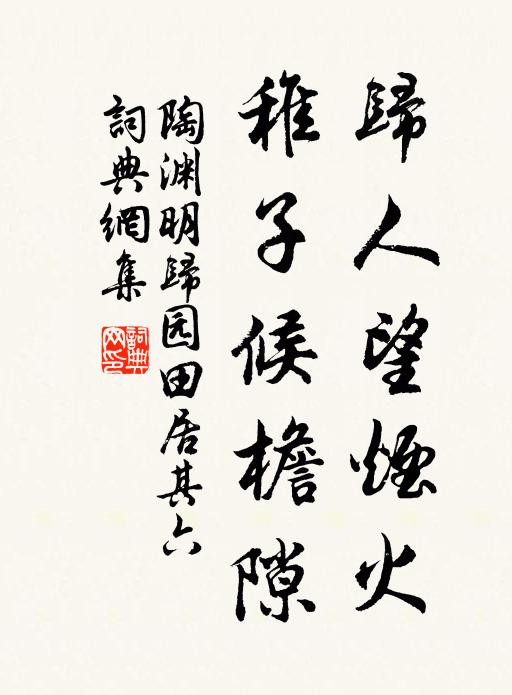 歸人望煙火
稚子候檐隙
陶渊明歸园田居其六
詞典網集
詞典
网印